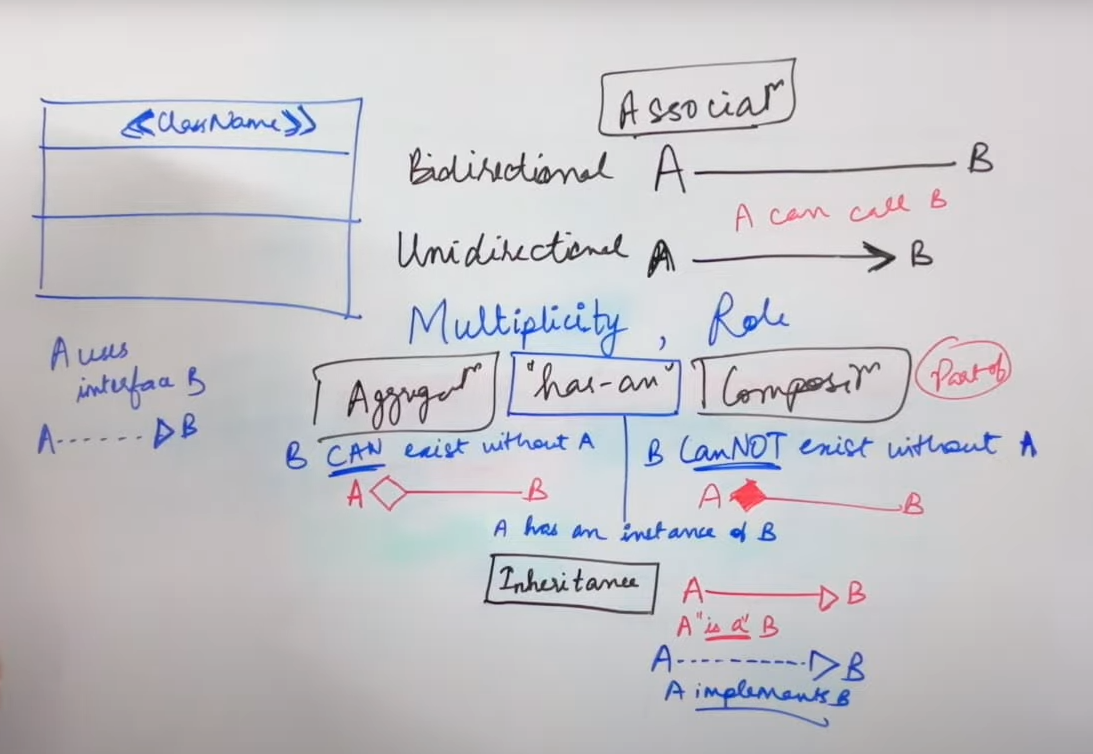 Associaⁿ
<<ClassName>>
Bidirectional A B
A can call B
Unidirectional A B
Multiplicity, Role
A uses
interface B
A B
Aggregaⁿ "has-an" Composiⁿ Part of
B CAN exist without A
B CanNOT exist without A
A B
A B
A has an instance of B
Inheritance A B
A "is a" B
A B
A implements B